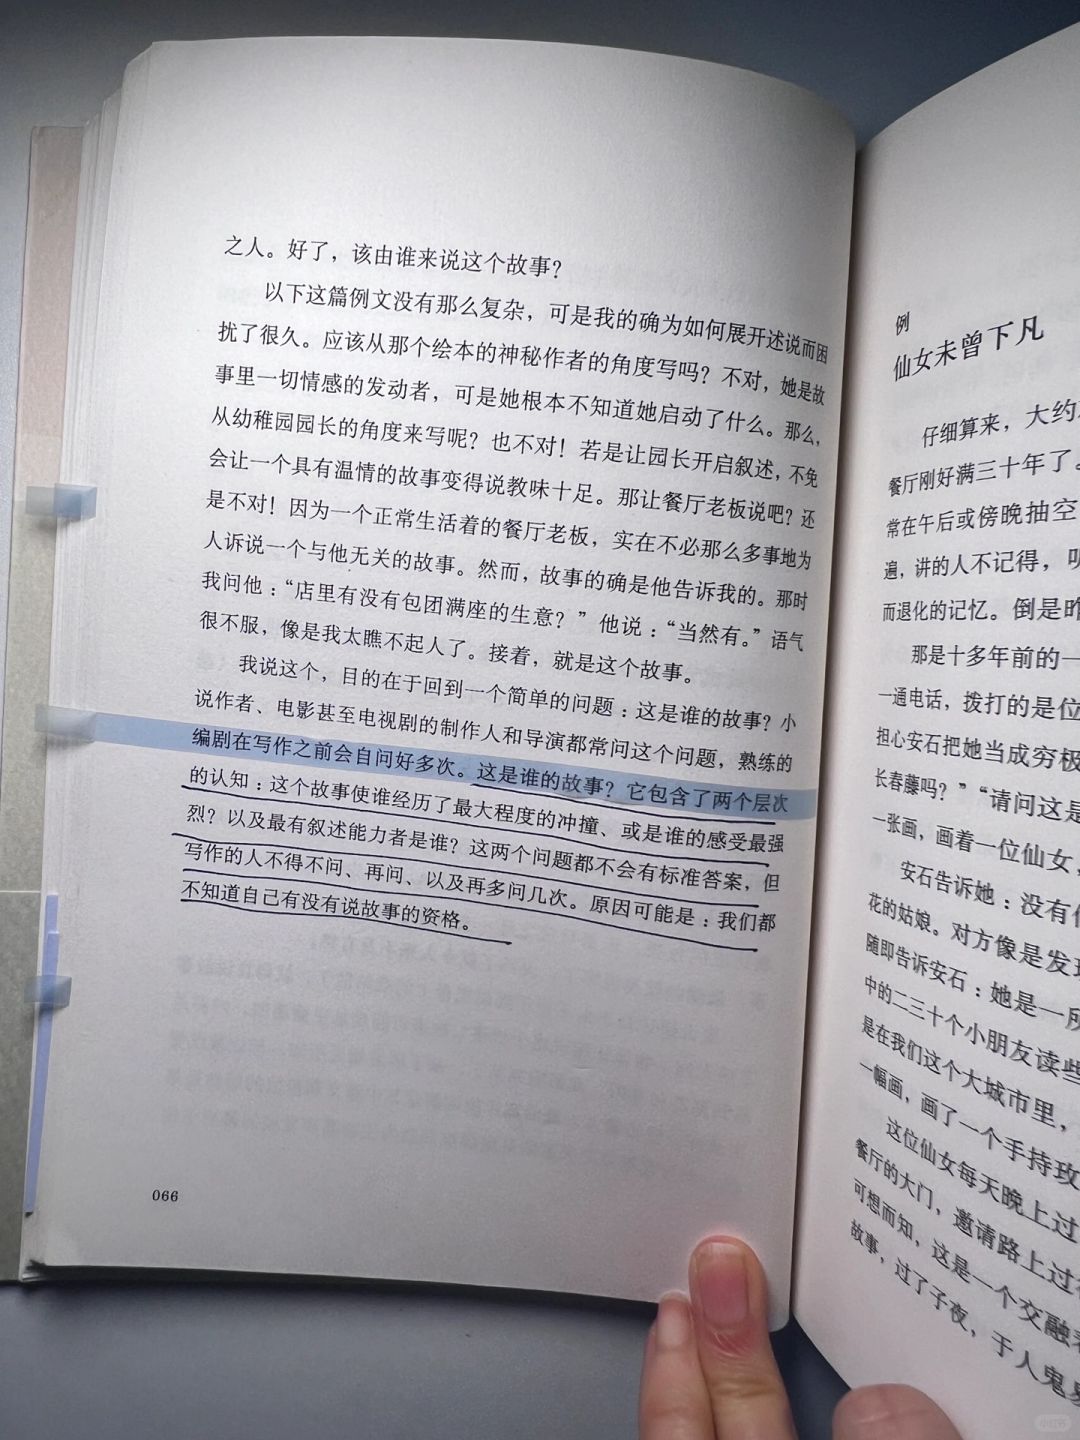 之人。好了，该由谁来说这个故事？
以下这篇例文没有那么复杂，可是我的确为如何展开述说而困
扰了很久。应该从那个绘本的神秘作者的角度写吗？不对，她是故
事里一切情感的发动者，可是她根本不知道她启动了什么。那么，
从幼稚园园长的角度来写呢？也不对！若是让园长开启叙述，不免
会让一个具有温情的故事变得说教味十足。那让餐厅老板说吧？还
是不对！因为一个正常生活着的餐厅老板，实在不必那么多事地为
人诉说一个与他无关的故事。然而，故事的确是他告诉我的。那时
我问他：“店里有没有包团满座的生意？”他说：“当然有。”语气
很不服，像是我太瞧不起人了。接着，就是这个故事。
我说这个，目的在于回到一个简单的问题：这是谁的故事？小
说作者、电影甚至电视剧的制作人和导演都常问这个问题，熟练的
编剧在写作之前会自问好多次。这是谁的故事？它包含了两个层次
的认知：这个故事使谁经历了最大程度的冲撞、或是谁的感受最强
烈？以及最有叙述能力者是谁？这两个问题都不会有标准答案，但
写作的人不得不问、再问、以及再多问几次。原因可能是：我们都
不知道自己有没有说故事的资格。
066
例
仙女未曾下凡
仔细算来，大约
餐厅刚好满三十年了。
常在午后或傍晚抽空
遍，讲的人不记得，
而退化的记忆。倒是昨
那是十多年前的一
一通电话，拨打的是位
担心安石把她当成穷极
长春藤吗？”“请问这是
一张画，画着一位仙女，
安石告诉她：没有
花的姑娘。对方像是发现
随即告诉安石：她是一所
中的二三十个小朋友读些
是在我们这个大城市里，
一幅画，画了一个手持玫
这位仙女每天晚上过
餐厅的大门，邀请路上过
可想而知，这是一个交融
故事，过了子夜，于人鬼
小红书